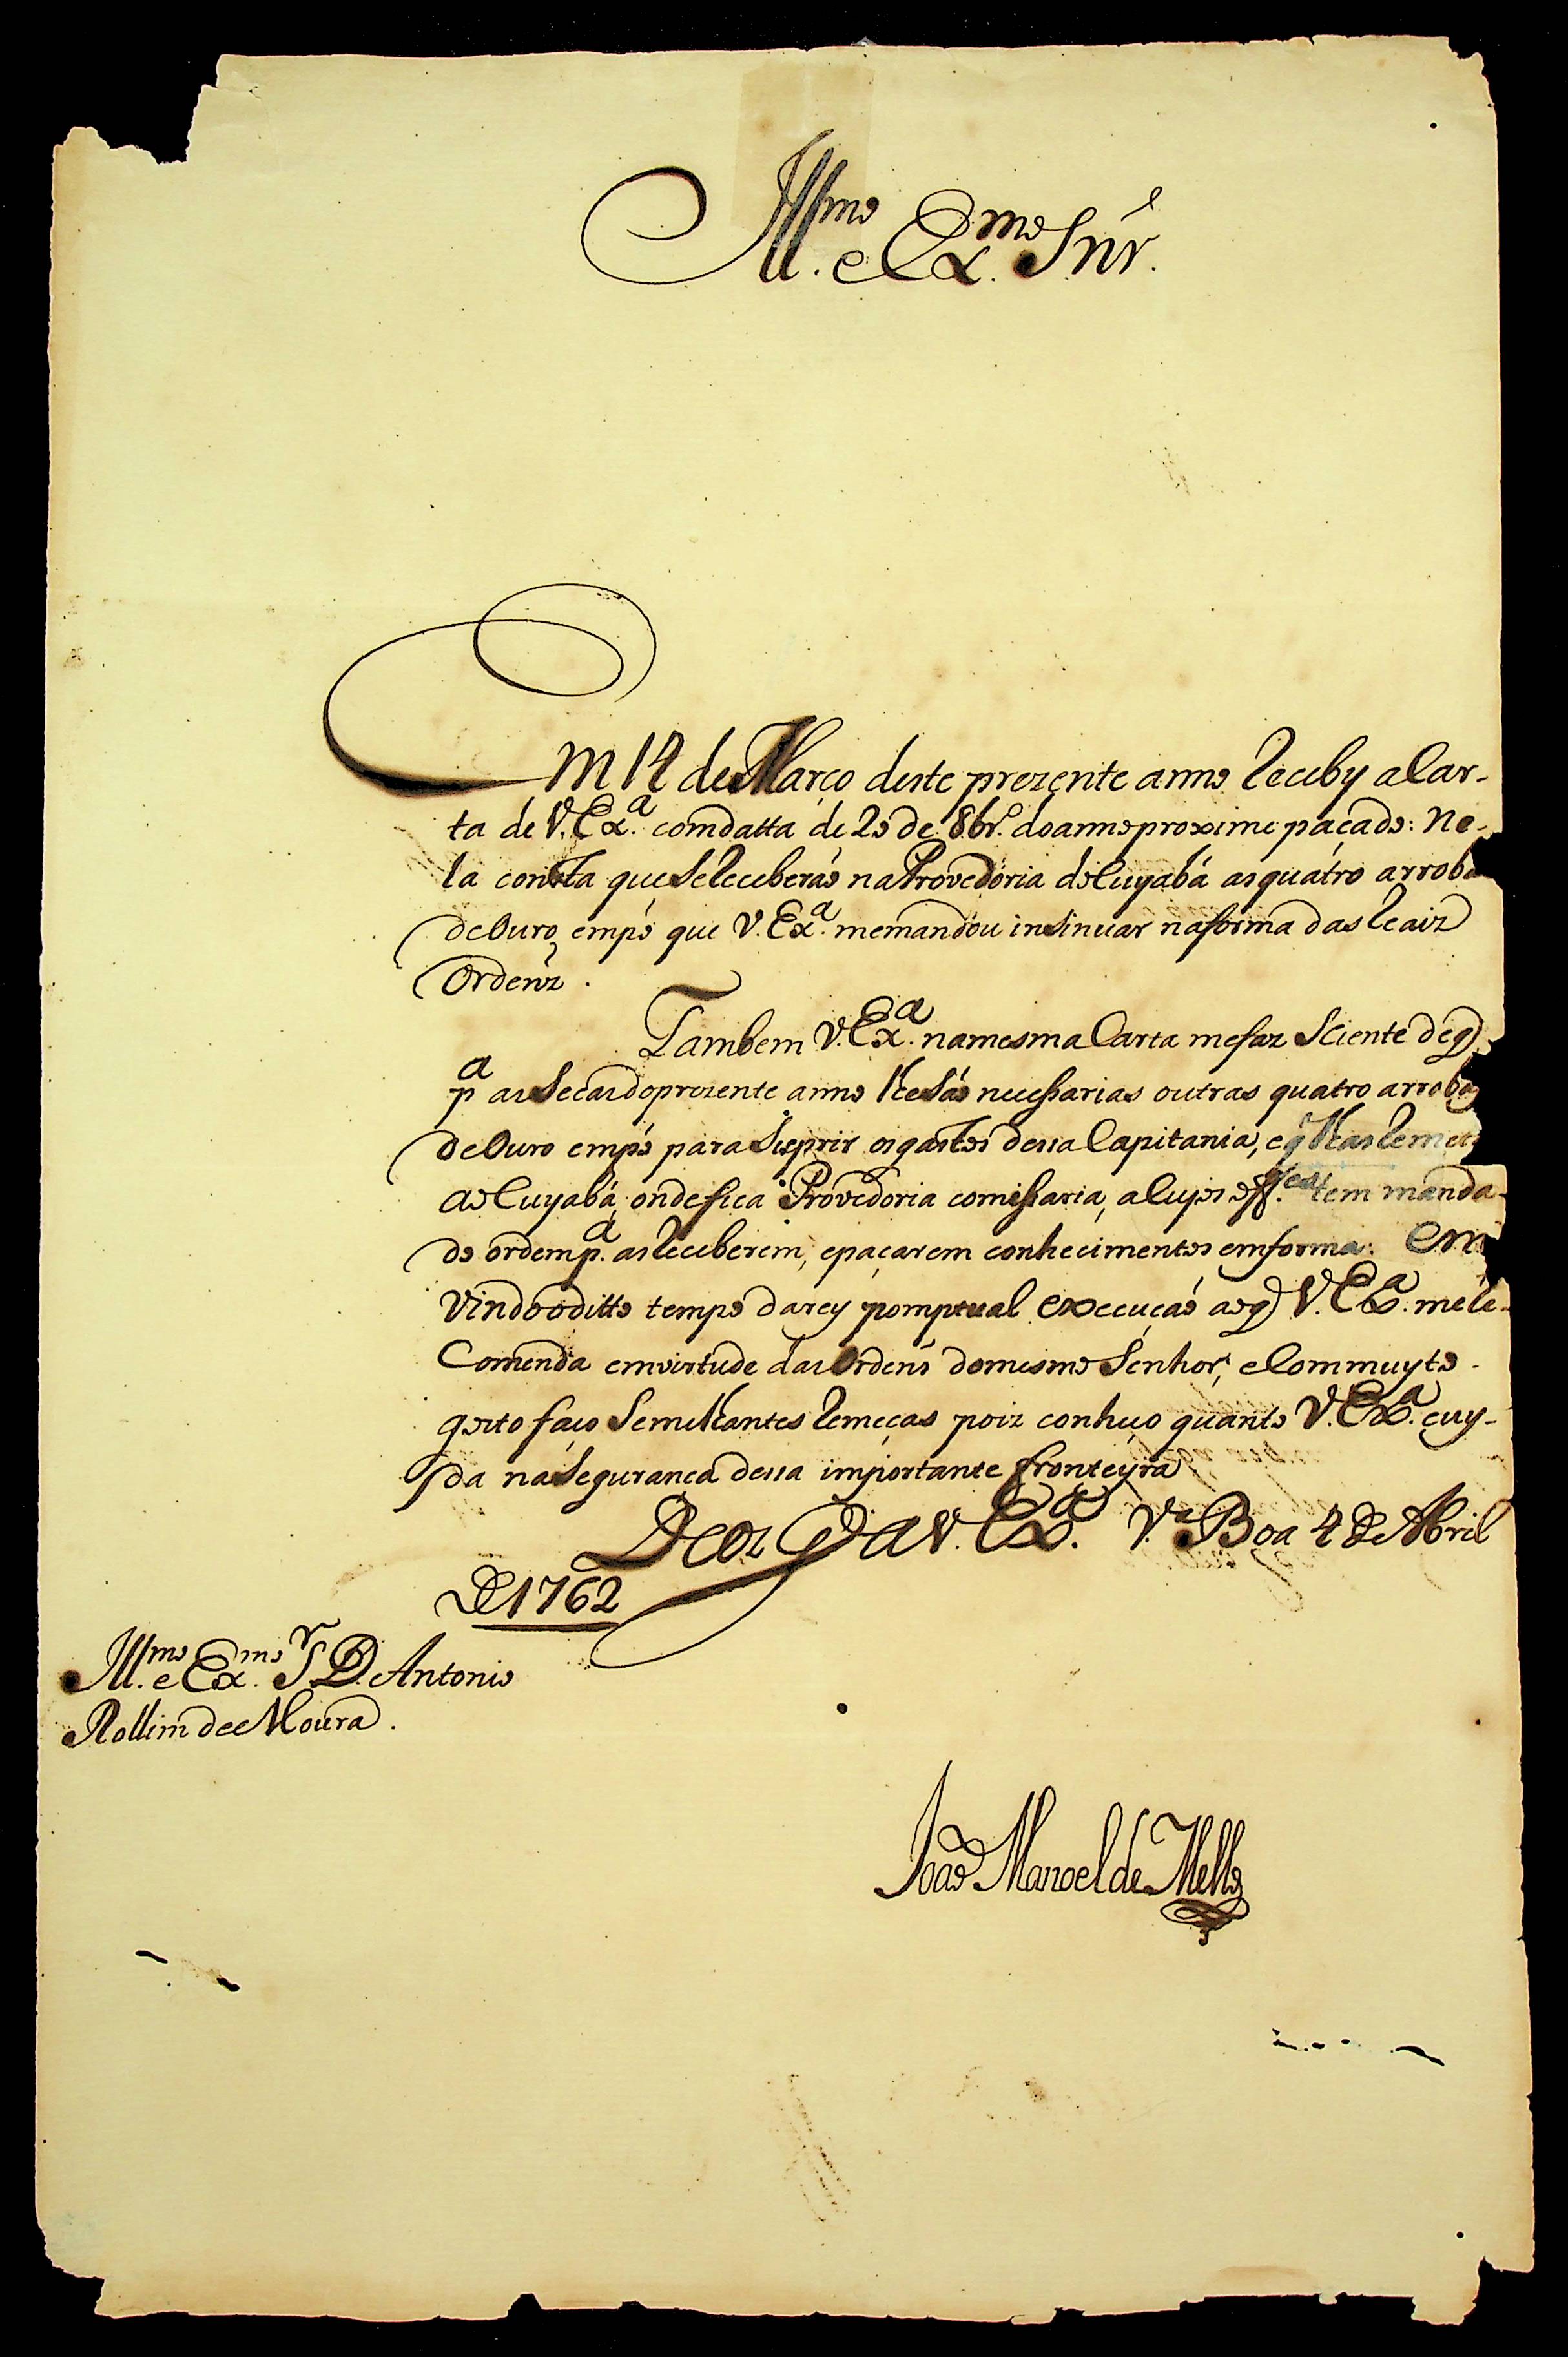 Ill.mo e Ex.mo Snr.
Em 14 de Março deste prezente anno Receby a Car-
ta de V. Ex.a com datta de 20 de 8br.o do anno proximo paçado: Ne-
la consta que se Receberáo na Provedoria do Cuyabá as quátro arroba
de Ouro em pó que V. Ex.a me mandou insinuar na forma das Reaiz
Ordenz.
Tambem V. Ex.a na mesma Carta me faz Sciente de q
p.a as Secas do prezente anno lhe sáo necessarias outras quatro arrobas
de Ouro em pó para suprir os gastos dessa Capitania, e q lhas Remet
ao Cuyabá, onde fica Provedoria comissaria, a Cujos off.es tem manda-
do ordem p.a as Receberem, e paçarem conhecimentos em forma: Em
Vindo o ditto tempo darey pomptual execuçáo ao q V. Ex.a me Re-
Comenda em virtude das Ordens do mesmo Senhor, e Com muyto
gosto faço Semilhantes Remeças poiz conheço quanto V. Ex.a cuy-
da na Segurança dessa importante fronteyra
Deoz G.de a V. Ex.a V.a Boa 4 de Abril
De 1762
Ill.mo e Ex.mo S.r D. Antonio
Rollim de Moura.
Joáo Manoel de Mello